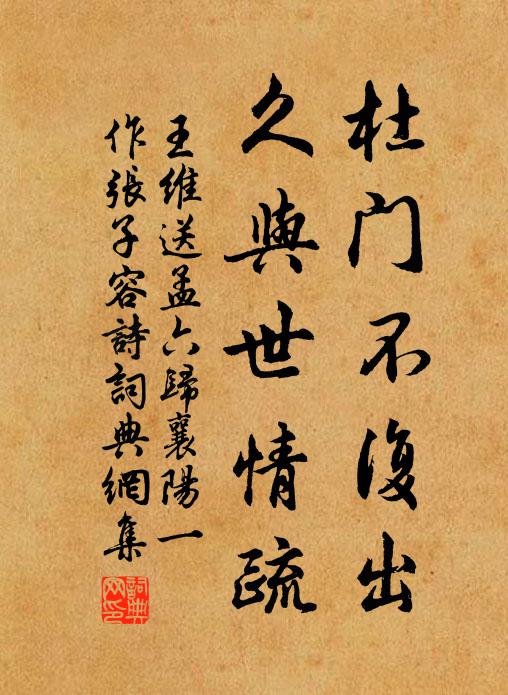 杜门不復出
久與世情疏
王維送孟六歸襄陽一
作張子容詩詞典網集
詞典網印